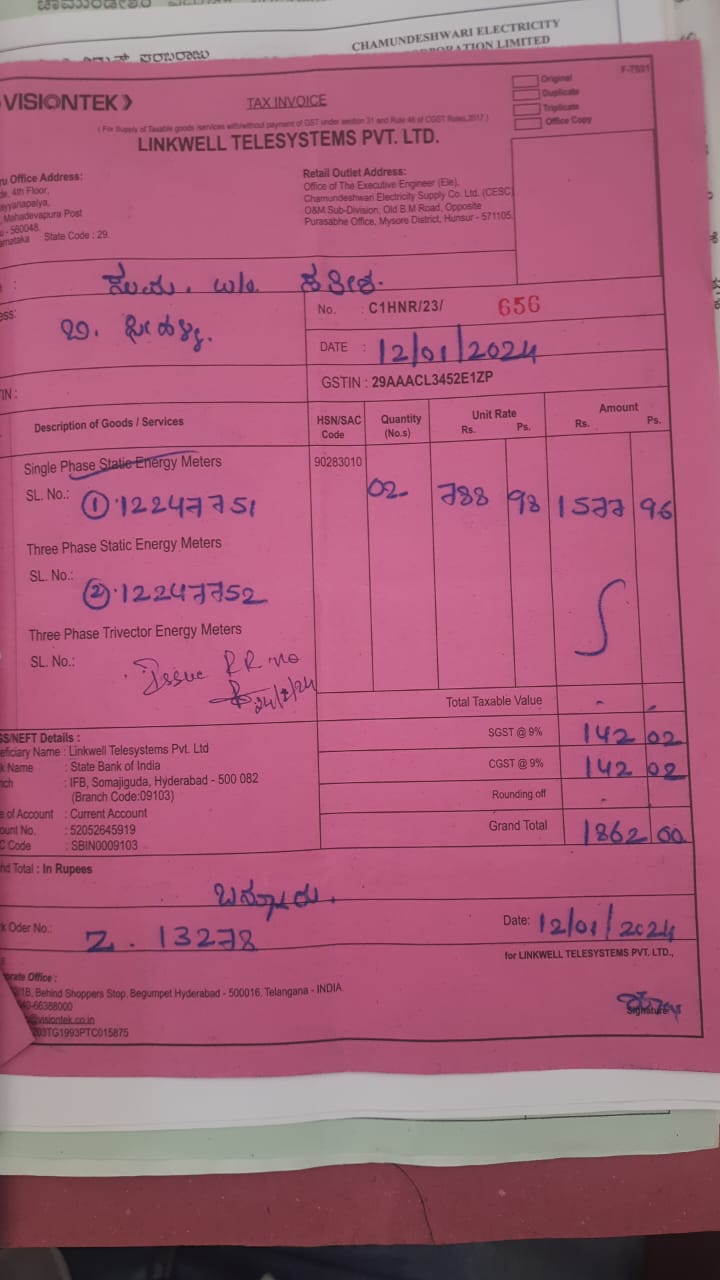 CHAMUNDESHWARI ELECTRICITY
CORPORATION LIMITED
F-7521
VISIONTEK
TAX INVOICE
Original
Duplicate
Triplicate
Office Copy
( For Supply of Taxable goods /services with/without payment of GST under section 31 and Rule 46 of CGST Rules,2017 )
LINKWELL TELESYSTEMS PVT. LTD.
Office Address:
4th Floor,
Mahadevapura Post
- 560048.
State Code : 29.
Retail Outlet Address:
Office of The Executive Engineer (Ele),
Chamundeshwari Electricity Supply Co. Ltd. (CESC)
O&M Sub-Division, Old B.M Road, Opposite
Purasabhe Office, Mysore District, Hunsur - 571105.
W/o.
No. : C1HNR/23/ 656
DATE : 12/01/2024
GSTIN : 29AAACL3452E1ZP
Description of Goods / Services HSN/SAC Code Quantity (No.s) Unit Rate Rs. Ps. Amount Rs. Ps.
Single Phase Static Energy Meters 90283010
SL. No.: ① 12247751 02 788 98 1577 96
Three Phase Static Energy Meters
SL. No.: ② 12247752
Three Phase Trivector Energy Meters
SL. No.: Issue RR no
24/2/24
Total Taxable Value
SGST @ 9% 142 02
CGST @ 9% 142 02
Rounding off
Grand Total 1862 00
/NEFT Details :
Name : Linkwell Telesystems Pvt. Ltd
Name : State Bank of India
: IFB, Somajiguda, Hyderabad - 500 082
(Branch Code:09103)
of Account : Current Account
No. : 52052645919
Code : SBIN0009103
Total : In Rupees
Oder No.: Z. 13278
Date: 12/01/2024
for LINKWELL TELESYSTEMS PVT. LTD.,
Office :
Behind Shoppers Stop, Begumpet Hyderabad - 500016, Telangana - INDIA.
-66388000
visiontek.co.in
TG1993PTC015875
Signature